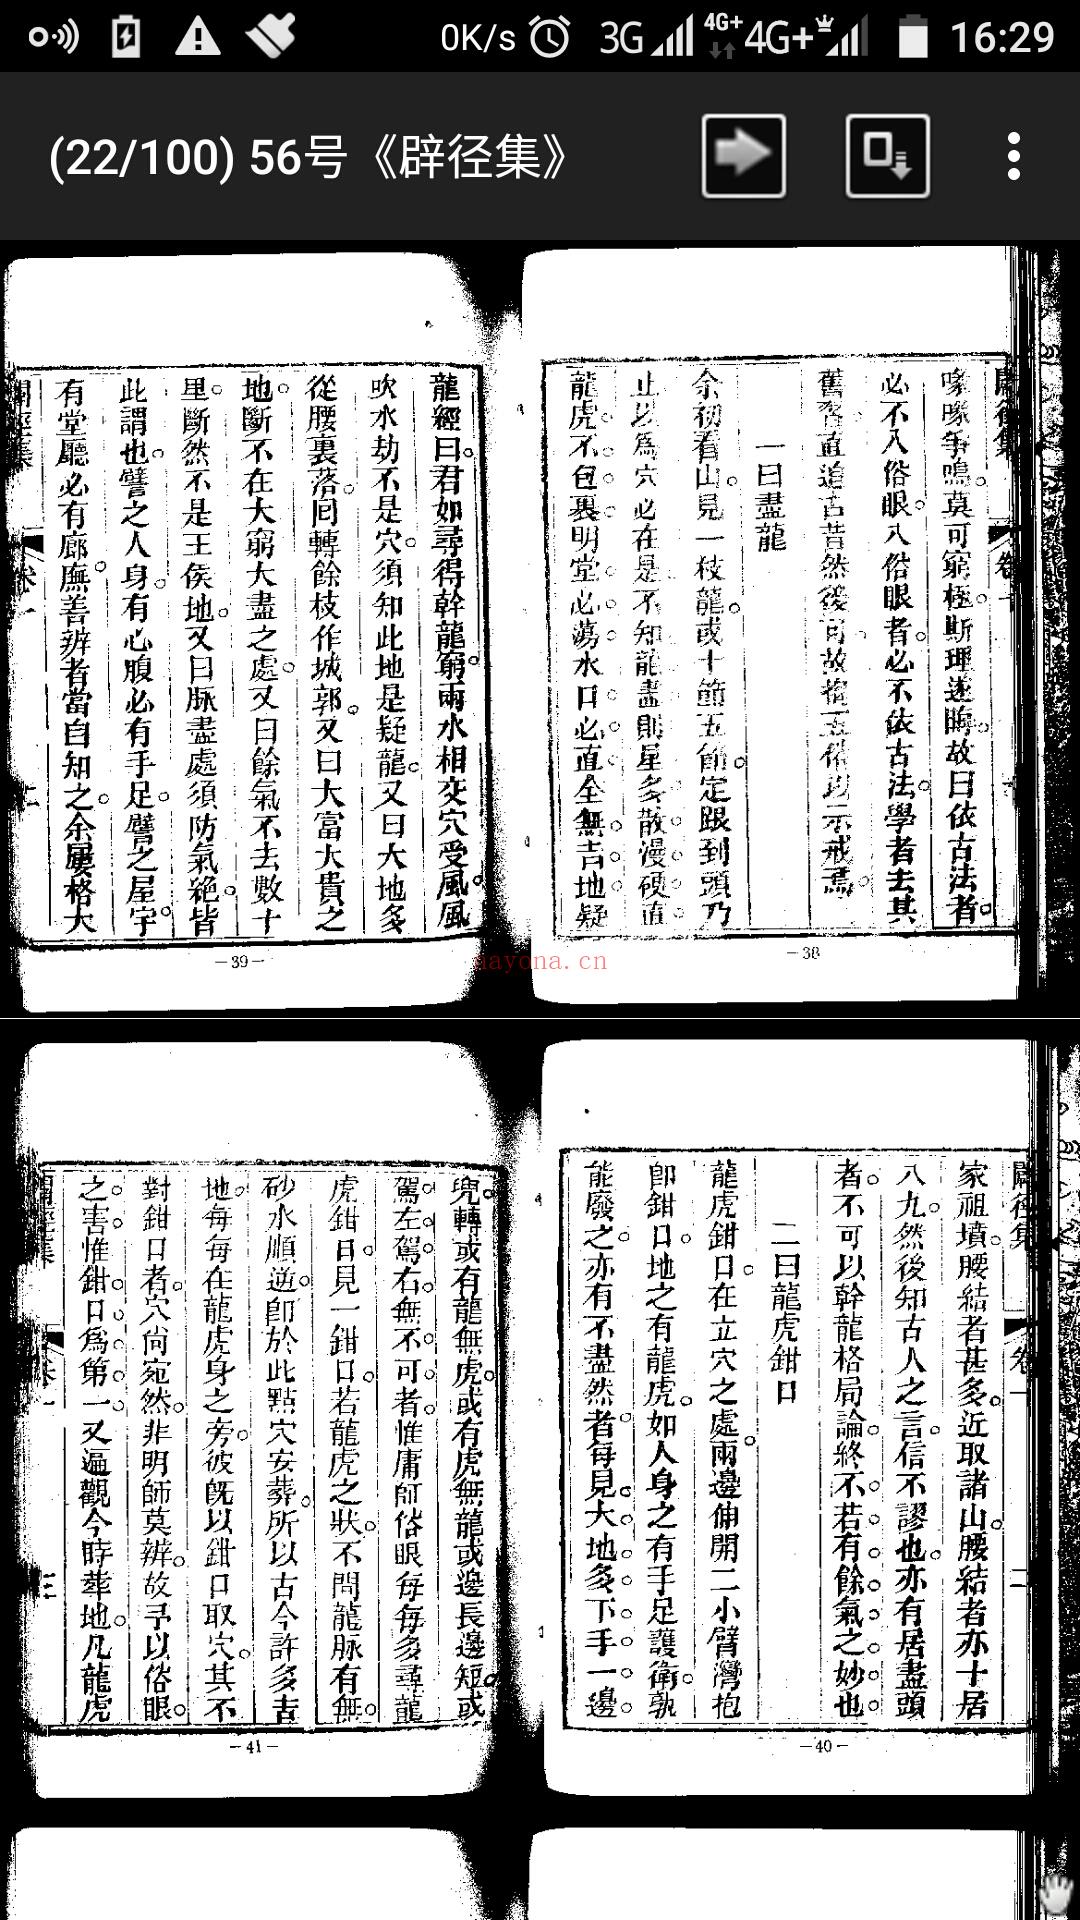 0K/s 3G 4G+ 4G+ 16:29
(22/100) 56号《辟径集》
喙喙爭鳴莫可窮極斯理遂晦故曰依古法者
必不入俗眼入俗眼者必不依古法學者去其
舊習直追古昔然後可故摘五俗以示戒焉
一曰盡龍
余初看山見一枝龍或十節五節定跟到頭乃
止以爲穴必在是不知龍盡則星多散漫硬直
龍虎不包裹明堂必蕩水口必直全無吉地疑
-38-
龍經曰君如尋得幹龍窮兩水相交穴受風風
吹水劫不是穴須知此地是疑龍又曰大地多
從腰裏落囘轉餘枝作城郭又曰大富大貴之
地斷不在大窮大盡之處又曰餘氣不去數十
里斷然不是王侯地又曰脉盡處須防氣絶皆
此謂也譬之人身有心腹必有手足譬之屋宇
有堂廳必有廊廡善辨者當自知之余屢格大
卷一
-39-
nayona.cn
家祖墳腰結者甚多近取諸山腰結者亦十居
八九然後知古人之言信不謬也亦有居盡頭
者不可以幹龍格局論終不若有餘氣之妙也
二曰龍虎鉗口
龍虎鉗口在立穴之處兩邊伸開二小臂灣抱
卽鉗口地之有龍虎如人身之有手足護衛孰
能廢之亦有不盡然者每見大地多下手一邊
-40-
兜轉或有龍無虎或有虎無龍或邊長邊短或
駕左駕右無不可者惟庸師俗眼每每多尋龍
虎鉗日見一鉗口若龍虎之狀不問龍脉有無
砂水順逆卽於此點穴安葬所以古今許多吉
地每每在龍虎身之旁彼旣以鉗口取穴其不
對鉗口者穴尙宛然非明師莫辨故予以俗眼
之害惟鉗口爲第一又遍觀今時葬地凡龍虎
-41-